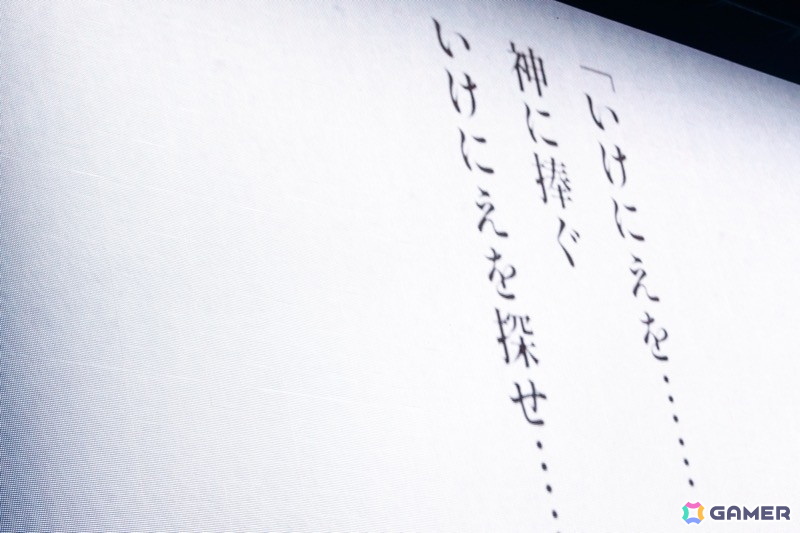 「いけにえを……
神に捧ぐ
いけにえを探せ……
GAMER